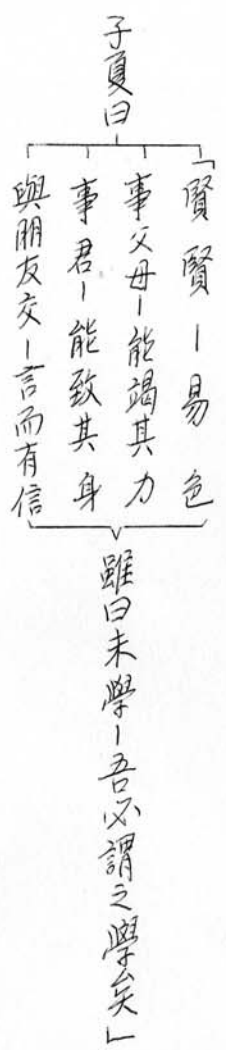 子夏曰
「賢賢-易色
事父母-能竭其力
事君-能致其身
與朋友交-言而有信
雖曰未學-吾必謂之學矣」